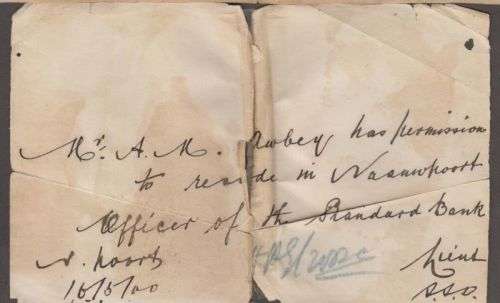 Mr. A. M. Awbey has permission
to reside in Naauwpoort
Officer of the Standard Bank
N. poort Lieut
15/5/00 S.S.O.